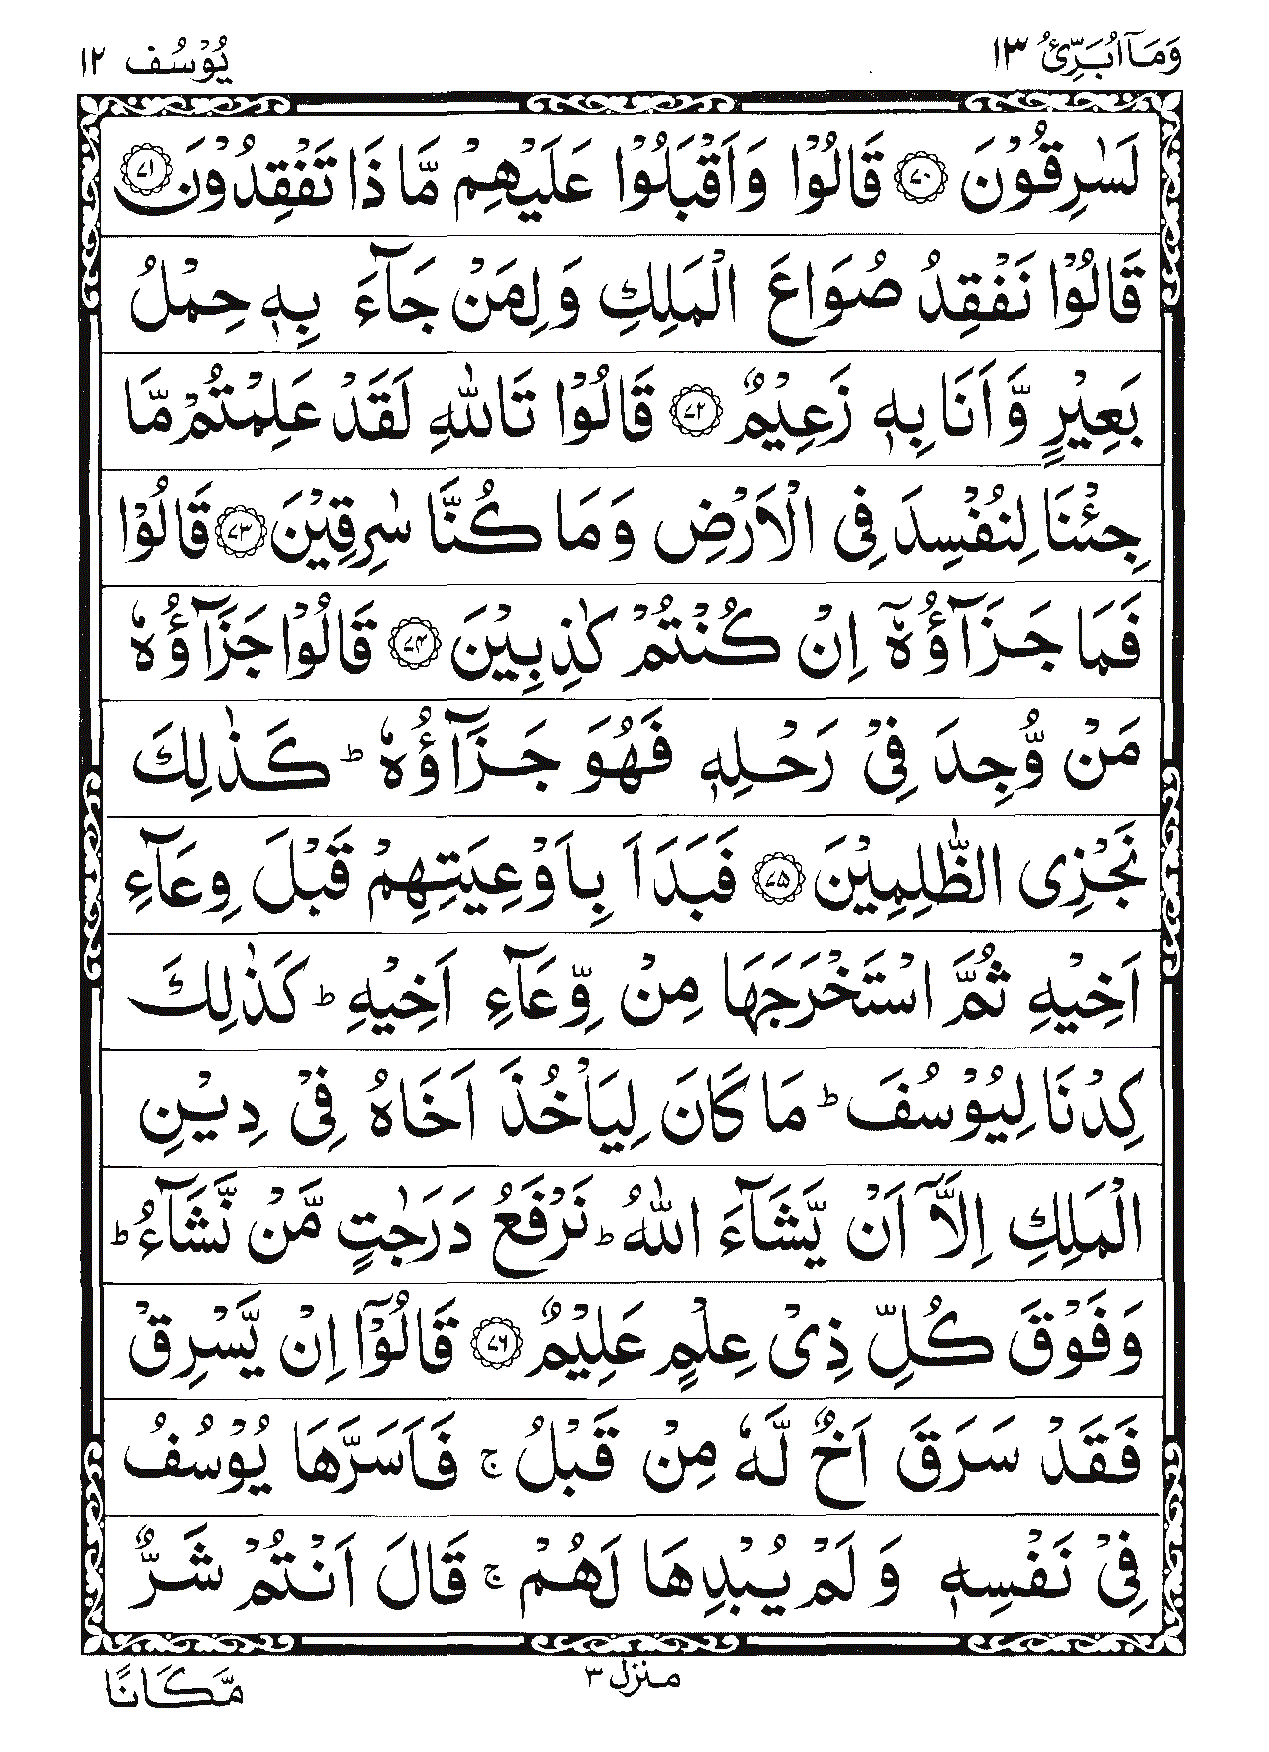 وَمَاۤ اُبَرِّئُ ١٣
يُوْسُف ١٢
لَسٰرِقُوْنَ ﴿٧٠﴾ قَالُوْا وَاَقْبَلُوْا عَلَيْهِمْ مَّا ذَا تَفْقِدُوْنَ ﴿٧١﴾
قَالُوْا نَفْقِدُ صُوَاعَ الْمَلِكِ وَ لِمَنْ جَآءَ بِهٖ حِمْلُ
بَعِيْرٍ وَّ اَنَا بِهٖ زَعِيْمٌ ﴿٧٢﴾ قَالُوْا تَاللّٰهِ لَقَدْ عَلِمْتُمْ مَّا
جِئْنَا لِنُفْسِدَ فِى الْاَرْضِ وَ مَا كُنَّا سٰرِقِيْنَ ﴿٧٣﴾ قَالُوْا
فَمَا جَزَآؤُهٗۤ اِنْ كُنْتُمْ كٰذِبِيْنَ ﴿٧٤﴾ قَالُوْا جَزَآؤُهٗ
مَنْ وُّجِدَ فِىْ رَحْلِهٖ فَهُوَ جَزَآؤُهٗ ؕ كَذٰلِكَ
نَجْزِى الظّٰلِمِيْنَ ﴿٧٥﴾ فَبَدَاَ بِاَوْعِيَتِهِمْ قَبْلَ وِعَآءِ
اَخِيْهِ ثُمَّ اسْتَخْرَجَهَا مِنْ وِّعَآءِ اَخِيْهِ ؕ كَذٰلِكَ
كِدْنَا لِيُوْسُفَ ؕ مَا كَانَ لِيَاْخُذَ اَخَاهُ فِىْ دِيْنِ
الْمَلِكِ اِلَّاۤ اَنْ يَّشَآءَ اللّٰهُ ؕ نَرْفَعُ دَرَجٰتٍ مَّنْ نَّشَآءُ ؕ
وَفَوْقَ كُلِّ ذِىْ عِلْمٍ عَلِيْمٌ ﴿٧٦﴾ قَالُوْۤا اِنْ يَّسْرِقْ
فَقَدْ سَرَقَ اَخٌ لَّهٗ مِنْ قَبْلُ ۚ فَاَسَرَّهَا يُوْسُفُ
فِىْ نَفْسِهٖ وَ لَمْ يُبْدِهَا لَهُمْ ۚ قَالَ اَنْتُمْ شَرٌّ
منزل ٣
مَّكَانًا